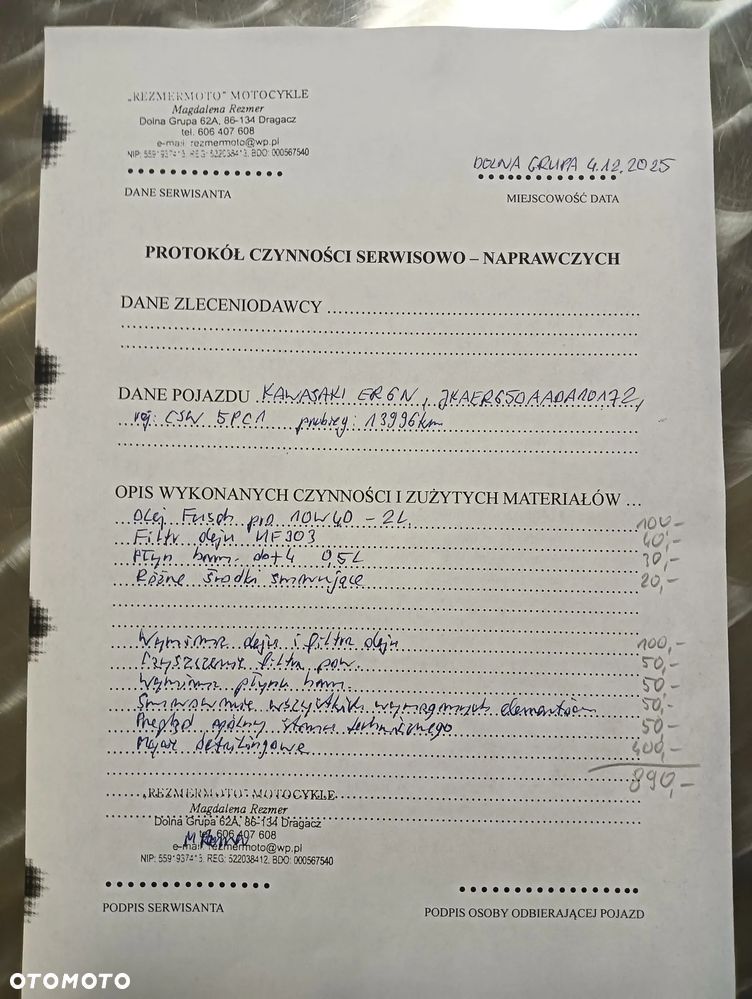 „REZMERMOTO" MOTOCYKLE
Magdalena Rezmer
Dolna Grupa 62A, 86-134 Dragacz
tel. 606 407 608
e-mail: rezmermoto@wp.pl
BDO: 000567540
DANE SERWISANTA
DOLNA GRUPA 4.12.2025
MIEJSCOWOŚĆ DATA
PROTOKÓŁ CZYNNOŚCI SERWISOWO – NAPRAWCZYCH
DANE ZLECENIODAWCY
DANE POJAZDU KAWASAKI ER6N, JKAER650AADA10172,
rej: CSW 5PC1 przebieg: 13996km
OPIS WYKONANYCH CZYNNOŚCI I ZUŻYTYCH MATERIAŁÓW ...
Olej Fusch pro 10W40 – 2L. 100,-
Filtr oleju HF303 40,-
Płyn ham. dot4 0,5L 30,-
Różne środki smarujące 20,-
Wymiana oleju i filtra oleju 100,-
Czyszczenie filtra pow. 50,-
Wymiana płynu ham. 50,-
Smarowanie wszystkich wymaganych elementów 50,-
Przegląd ogólny stanu technicznego 50,-
detailingowe 400,-
890,-
„REZMERMOTO" MOTOCYKLE
Magdalena Rezmer
Dolna Grupa 62A, 86-134 Dragacz
tel. 606 407 608
e-mail: rezmermoto@wp.pl
REG: 522038412, BDO: 000567540
PODPIS SERWISANTA
PODPIS OSOBY ODBIERAJĄCEJ POJAZD
OTOMOTO